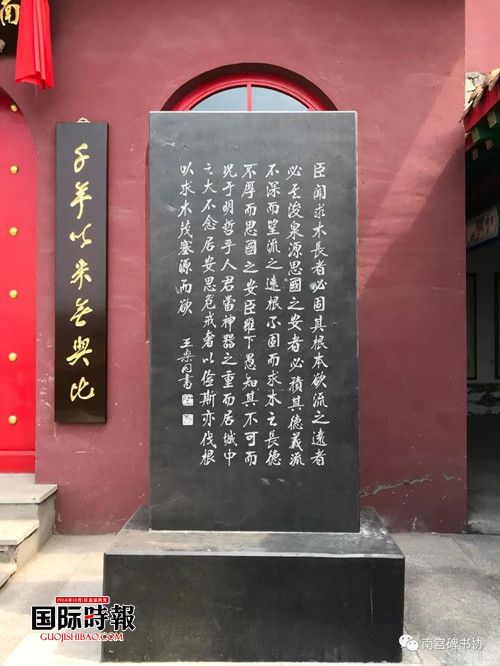 南
千年以来無與比
臣聞求木長者必固其根本欲流之遠者
必其浚泉源思國之安者必積其德義流
不深而望流之遠根不固而求木之長德
不厚而思國之安臣雖下愚知其不可而
況于明哲乎人君當神器之重而居域中
之大不念居安思危戒奢以儉斯亦伐根
以求木茂塞源而欲
王樂同書
国际時報
GUOJISHIBAO.COM
南宫碑书协